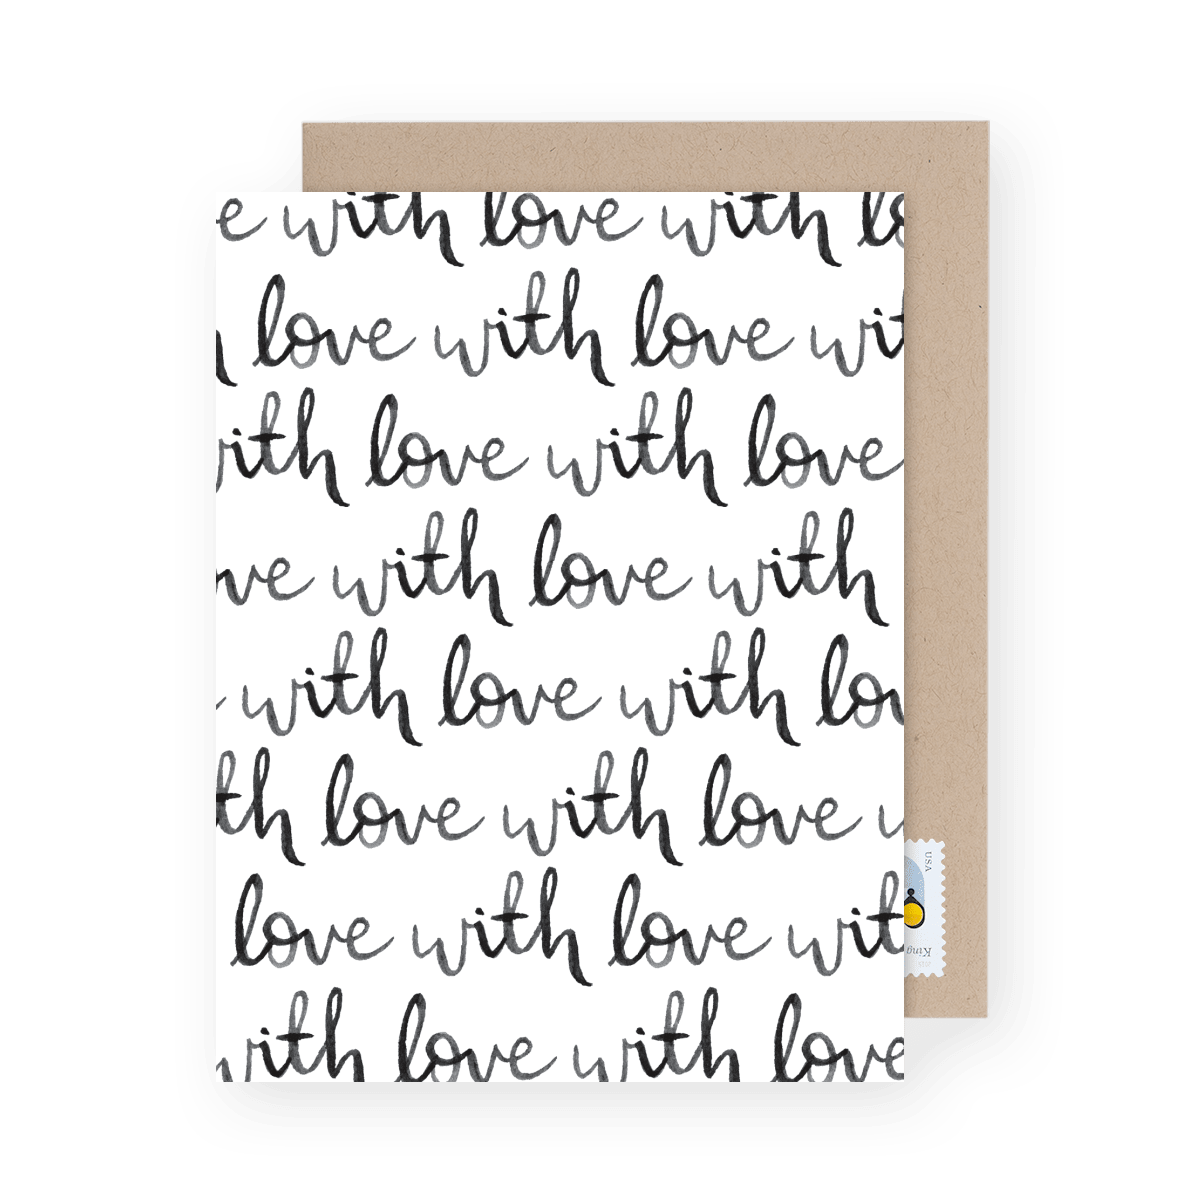 e with love with lo
h love with love wit
with love with love
ove with love with
with love with lov
th love with love w
love with love wit
with love with love
USA
King